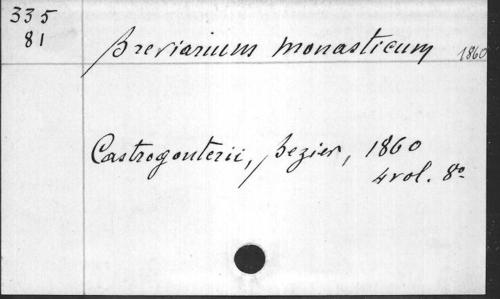 335
81
Breviarium monasticum 1860
Castrogonterii, Bezier, 1860
4 vol. 8º